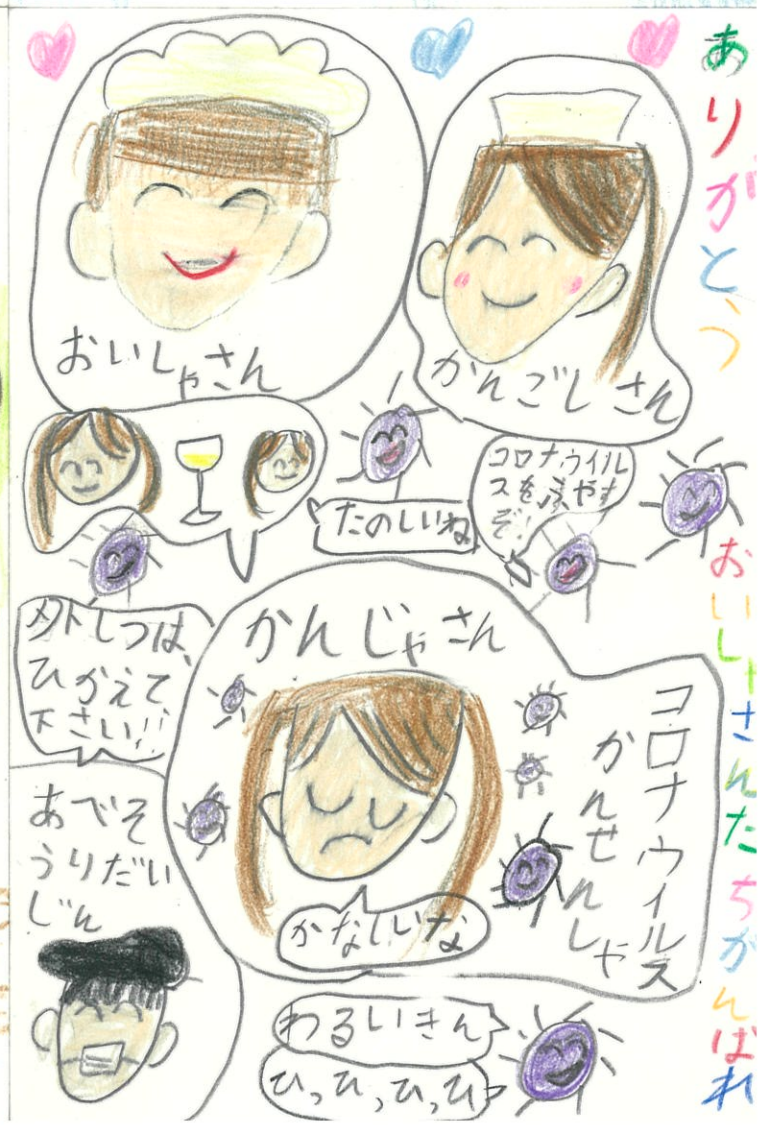 ありがとう
おいしゃさんたちがんばれ
おいしゃさん
かんごしさん
たのしいね
コロナウイル
スを冫やす
ぞ!
外しつは、
ひかえて
下さい!!
かんじゃさん
コロナウイルス
かんせんしゃ
かなしいな
あべそ
うりだい
じん
わるいきん
ひっひっひっひ